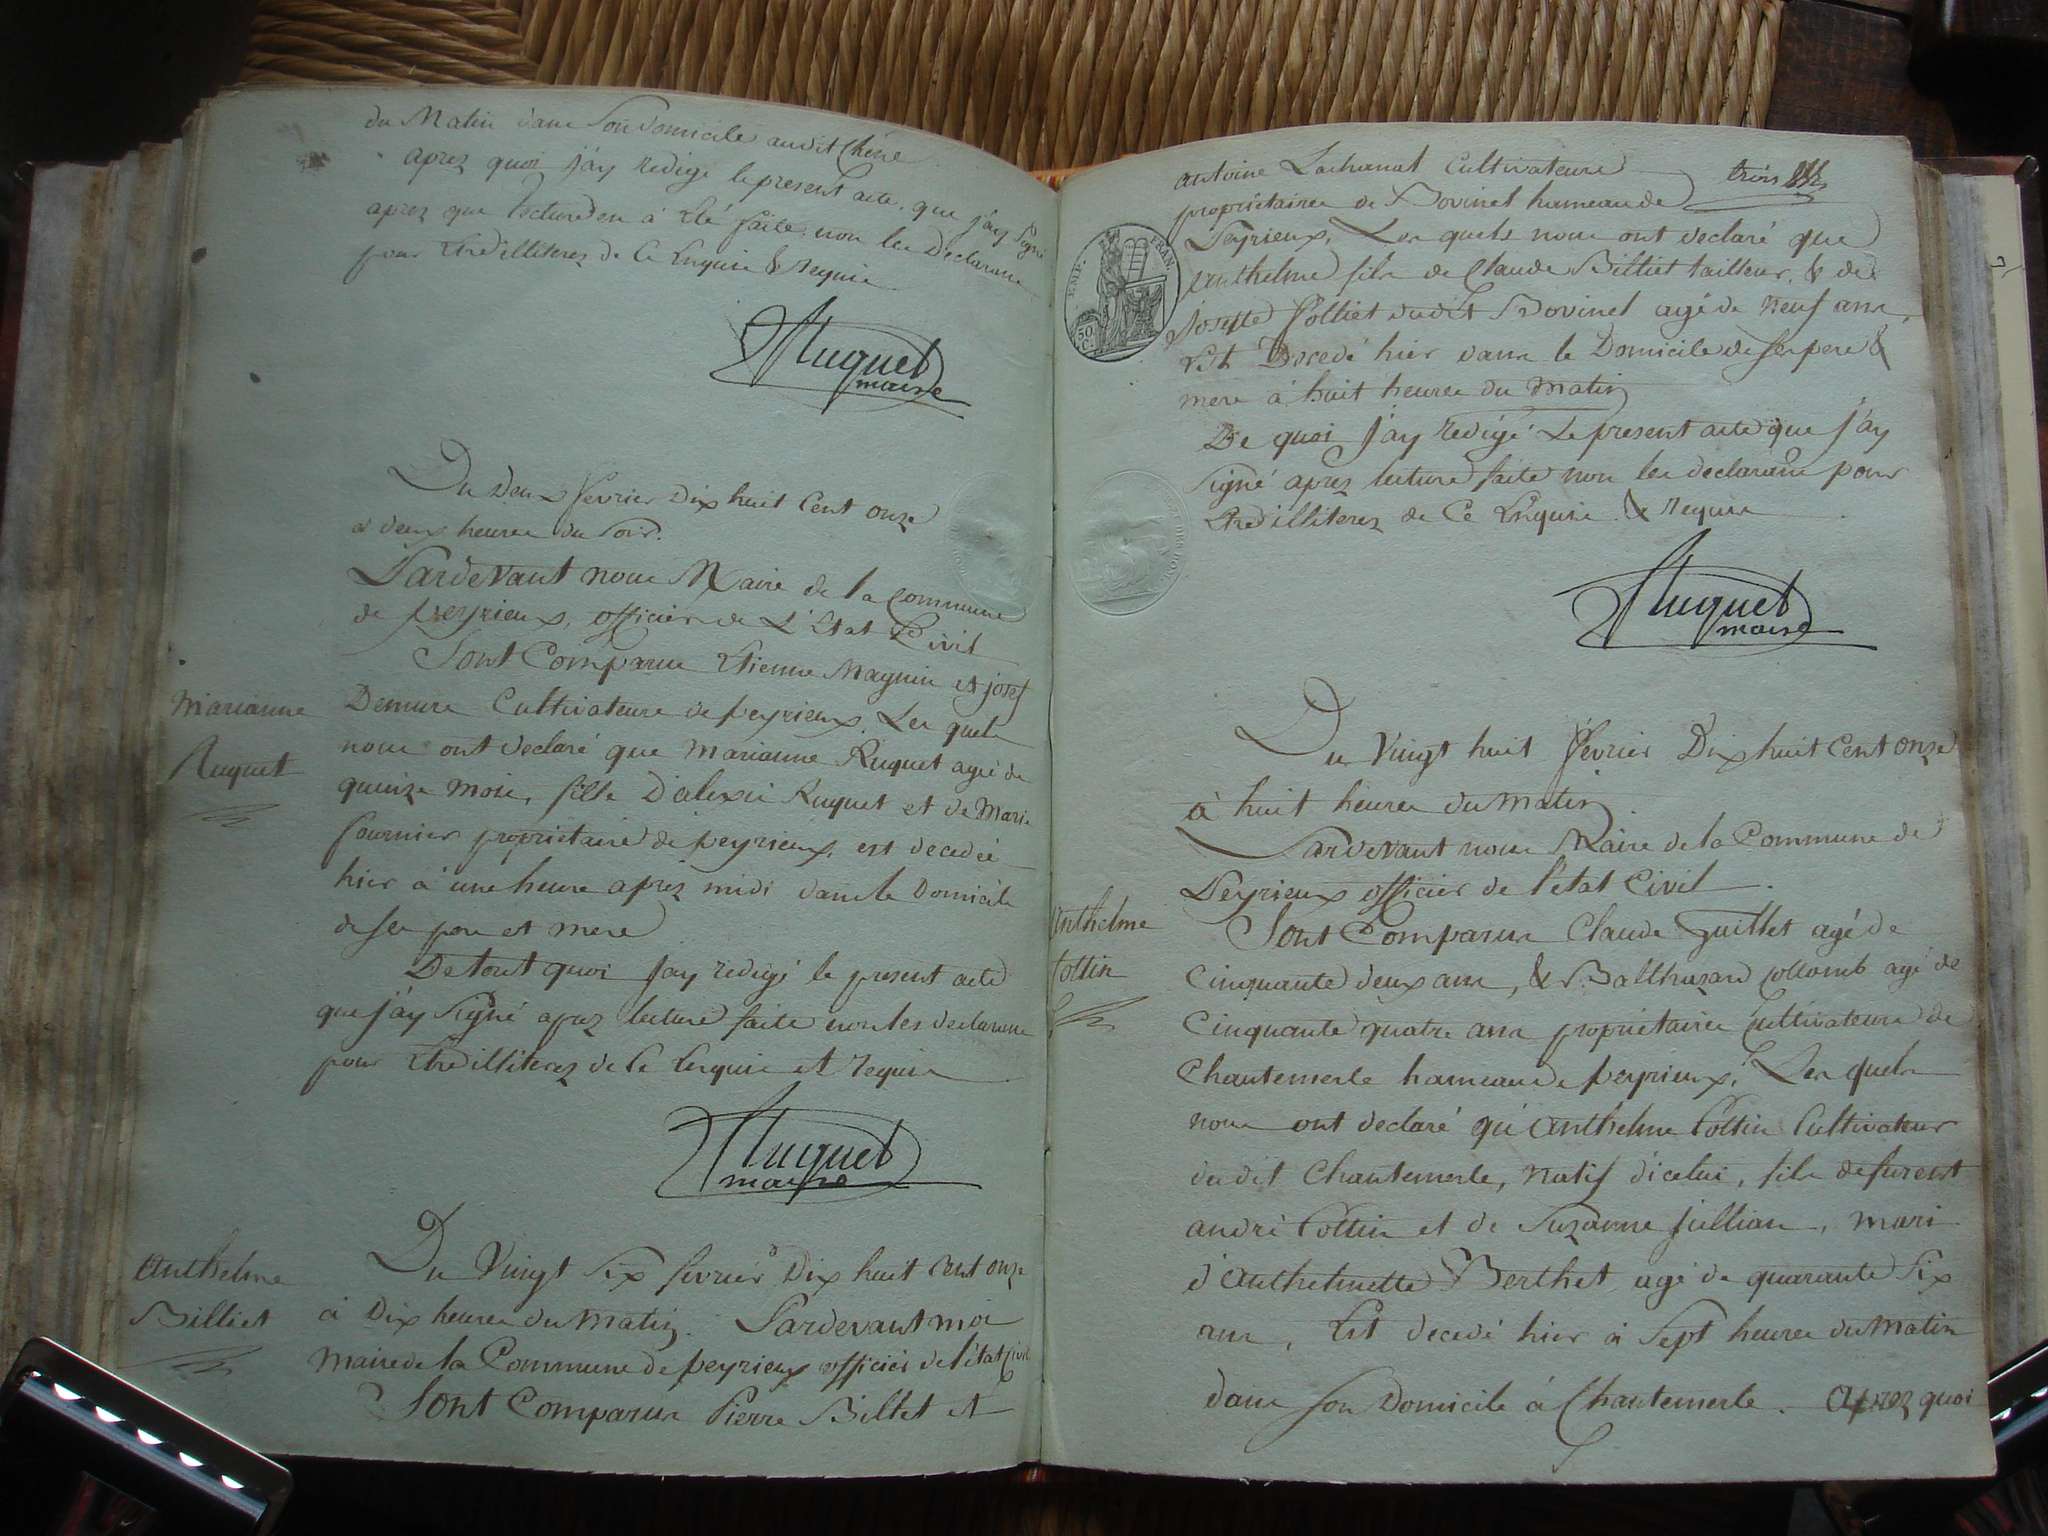 du Matin dans Son domicile audit Chêne
aprez quoi j'ay redigé le present acte, que j'ay Signé
aprez que lecture en a été faite, non les Declarans
pour Etre illiterez de Ce Enquis & requis
Ruquet
maire
Du Deux fevrier Dix huit Cent onze
a deux heures du Soir.
Pardevant nous Maire de la Commune
de peyrieux, officier de L'Etat Civil
Sont Comparus Etienne Magnin et josef
Marianne
Ruquet
Demure Cultivateurs de peyrieux. Les quels
nous ont declaré que Marianne Ruquet agée de
quinze mois, fille D'alexis Ruquet et de Marie
fournier propriétaire de peyrieux, est decedée
hier à une heure aprez midi dans le Domicile
de ses pere et mere
De tout quoi j'ay redigé le present acte
que j'ay Signé aprez lecture faite non les declarans
pour Etre illiterez de Ce Enquis et requis
Ruquet
maire
Anthelme
Billiet
Du Vingt Six fevrier Dix huit Cent onze
à Dix heures du Matin. Pardevant moi
Maire de la Commune de peyrieux officier de l'état Civil
Sont Comparus Pierre Billiet et
trois
antoine Lachanat Cultivateurs
propriétaires de Bovinel hameau de
Peyrieux. Les quels nous ont declaré que
Anthelme fils de Claude Billiet tailleur, & de
Josepte Jolliet dudit Bovinel agé de neuf ans,
Est Decedé hier dans le Domicile de ses pere &
mere à huit heures du Matin
EMP. FRAN.
50 C.
De quoi j'ay redigé Le present acte que j'ay
signé aprez lecture faite non les declarans pour
Etre illiterez de Ce Enquis & requis
Ruquet
maire
Du Vingt huit fevrier Dix huit Cent onze
à huit heures du Matin
Pardevant nous Maire de la Commune de
Peyrieux officier de l'état Civil.
Anthelme
Cottin
Sont Comparus Claude Guillet agé de
Cinquante deux ans, & Balthazard Collomb agé de
Cinquante quatre ans propriétaires Cultivateurs de
Chantemerle hameau de peyrieux; Les quels
nous ont declaré qu'Anthelme Cottin Cultivateur
dudit Chantemerle, natif d'icelui, fils de furent
andré Cottin et de Suzanne jullian, mari
d'Anthelmette Berthet, agé de quarante Six
ans, Est decedé hier à Sept heures du Matin
dans son Domicile à Chantemerle. Aprez quoi